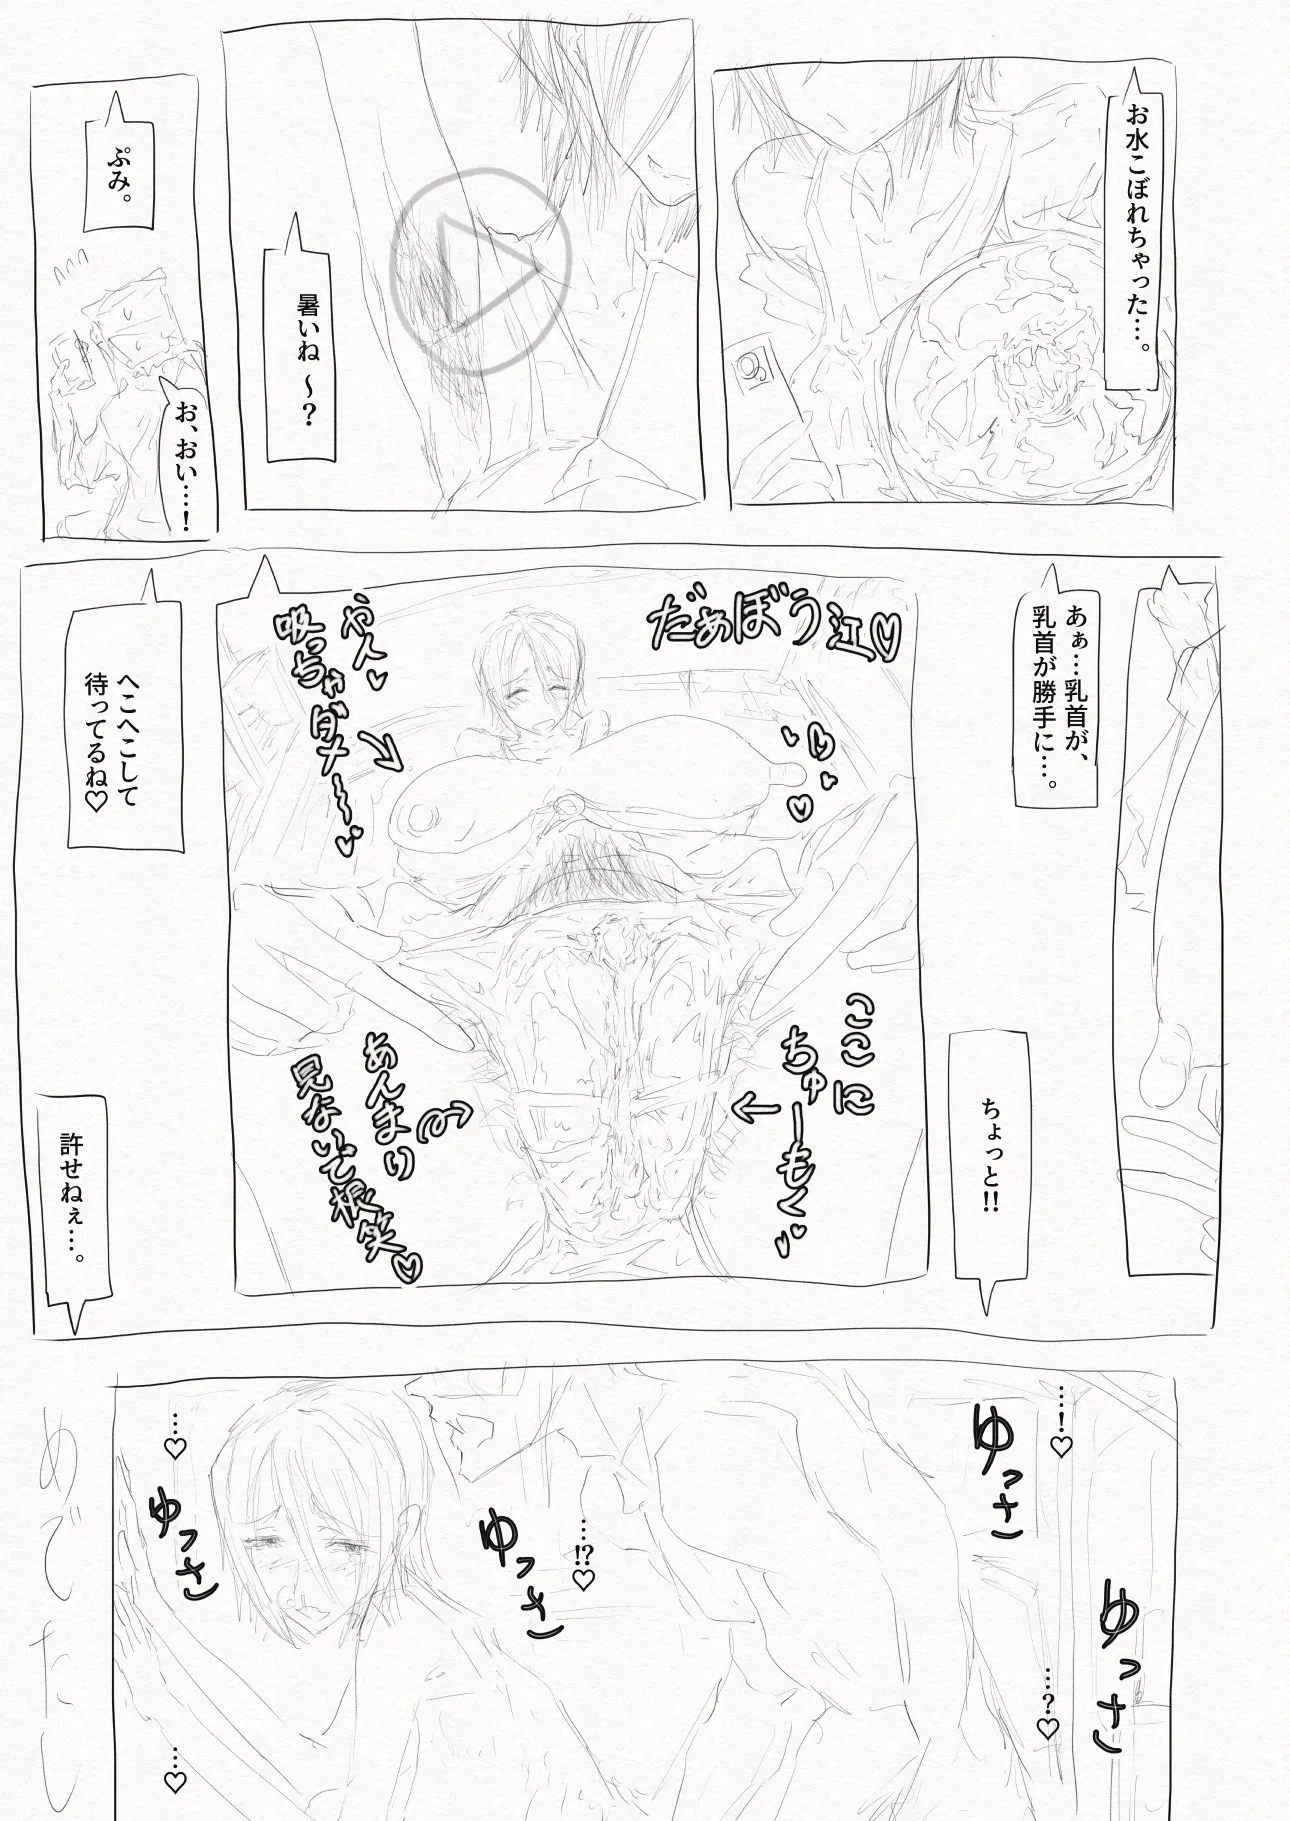 お水こぼれちゃった…。
暑いね～？
ぷみ。
お、おい……！
あぁ…乳首が、
乳首が勝手に…。
ちょっと!!
だぁぼう江♡
やん♡
吸っちゃダメ～～♡
ここに
ちゅーもく♡
あんまり
見ないで根笑♡
へこへこして
待ってるね♡
許せねぇ…。
…！♡
ゆっさ
ゆっさ
…？♡
…!?♡
ゆっさ
…♡
ゆっさ
…♡
めでたし